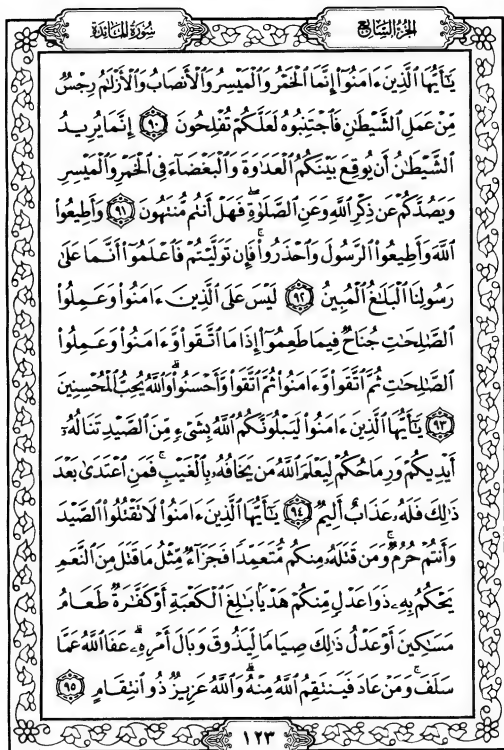 الجزء السابع
سُورَةُ المَائدة
يَٰٓأَيُّهَا ٱلَّذِينَ ءَامَنُوٓا۟ إِنَّمَا ٱلْخَمْرُ وَٱلْمَيْسِرُ وَٱلْأَنصَابُ وَٱلْأَزْلَٰمُ رِجْسٌ
مِّنْ عَمَلِ ٱلشَّيْطَٰنِ فَٱجْتَنِبُوهُ لَعَلَّكُمْ تُفْلِحُونَ ٩٠ إِنَّمَا يُرِيدُ
ٱلشَّيْطَٰنُ أَن يُوقِعَ بَيْنَكُمُ ٱلْعَدَٰوَةَ وَٱلْبَغْضَآءَ فِى ٱلْخَمْرِ وَٱلْمَيْسِرِ
وَيَصُدَّكُمْ عَن ذِكْرِ ٱللَّهِ وَعَنِ ٱلصَّلَوٰةِ ۖ فَهَلْ أَنتُم مُّنتَهُونَ ٩١ وَأَطِيعُوا۟
ٱللَّهَ وَأَطِيعُوا۟ ٱلرَّسُولَ وَٱحْذَرُوا۟ ۚ فَإِن تَوَلَّيْتُمْ فَٱعْلَمُوٓا۟ أَنَّمَا عَلَىٰ
رَسُولِنَا ٱلْبَلَٰغُ ٱلْمُبِينُ ٩٢ لَيْسَ عَلَى ٱلَّذِينَ ءَامَنُوا۟ وَعَمِلُوا۟
ٱلصَّٰلِحَٰتِ جُنَاحٌ فِيمَا طَعِمُوٓا۟ إِذَا مَا ٱتَّقَوا۟ وَّءَامَنُوا۟ وَعَمِلُوا۟
ٱلصَّٰلِحَٰتِ ثُمَّ ٱتَّقَوا۟ وَّءَامَنُوا۟ ثُمَّ ٱتَّقَوا۟ وَّأَحْسَنُوا۟ ۗ وَٱللَّهُ يُحِبُّ ٱلْمُحْسِنِينَ
٩٣ يَٰٓأَيُّهَا ٱلَّذِينَ ءَامَنُوا۟ لَيَبْلُوَنَّكُمُ ٱللَّهُ بِشَىْءٍ مِّنَ ٱلصَّيْدِ تَنَالُهُۥٓ
أَيْدِيكُمْ وَرِمَاحُكُمْ لِيَعْلَمَ ٱللَّهُ مَن يَخَافُهُۥ بِٱلْغَيْبِ ۚ فَمَنِ ٱعْتَدَىٰ بَعْدَ
ذَٰلِكَ فَلَهُۥ عَذَابٌ أَلِيمٌ ٩٤ يَٰٓأَيُّهَا ٱلَّذِينَ ءَامَنُوا۟ لَا تَقْتُلُوا۟ ٱلصَّيْدَ
وَأَنتُمْ حُرُمٌ ۚ وَمَن قَتَلَهُۥ مِنكُم مُّتَعَمِّدًا فَجَزَآءٌ مِّثْلُ مَا قَتَلَ مِنَ ٱلنَّعَمِ
يَحْكُمُ بِهِۦ ذَوَا عَدْلٍ مِّنكُمْ هَدْيًۢا بَٰلِغَ ٱلْكَعْبَةِ أَوْ كَفَّٰرَةٌ طَعَامُ
مَسَٰكِينَ أَوْ عَدْلُ ذَٰلِكَ صِيَامًا لِّيَذُوقَ وَبَالَ أَمْرِهِۦ ۗ عَفَا ٱللَّهُ عَمَّا
سَلَفَ ۚ وَمَنْ عَادَ فَيَنتَقِمُ ٱللَّهُ مِنْهُ ۗ وَٱللَّهُ عَزِيزٌ ذُو ٱنتِقَامٍ ٩٥
١٢٣